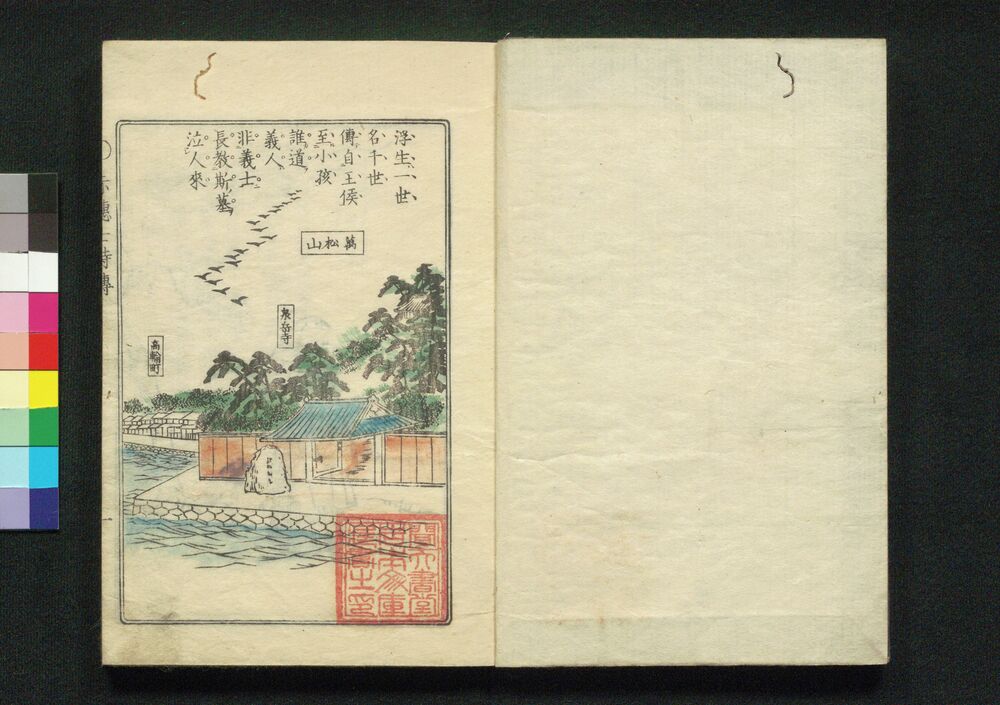 浮生一世
名千世
傳自王侯
至小孩
誰道
義人
非義士
長教斯墓
泣人來
萬松山
泉岳寺
高輪町